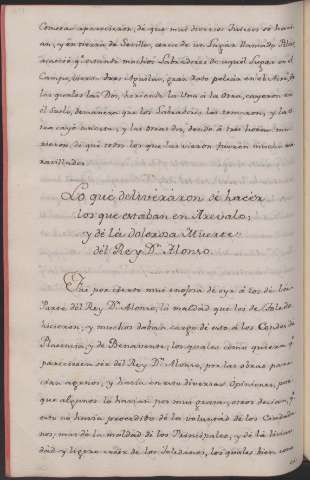 Cometas aparecieron, de que muy diversos Juicios se hacian, y en tierra de Sevilla, cerca de un Lugar llamado
acaeció q.e estando muchos Labradores de aquel Lugar en el
Campo, vieron dos Aguilas, gran rato pelear en el Ayre,
las quales las Dos, hiriendo la Una á la Otra, cayeron en
el Suelo, de manera que los Labradores las tomaron, y la
otra cayó muerta, y las otras dos, dende á tres horas
murieron, de que todos los que las vieron fueron mucho
maravillados.
Lo que deliveraron de hacer
los que estaban en Arevalo,
y de la dolorosa Muerte
del Rey D.n Alonso.
Fué por cierto muy enojosa de oyr á los de la
Parte del Rey D.n Alonso, la maldad que los de Toledo
hicieron, y muchos daban cargo de esto á los Condes de
Plasencia, y de Benavente, los quales como quiera q.e
pareciesen ser del Rey D.n Alonso, por las obras parecian agenos, y havia en esto diversas Opiniones, por
que algunos lo havian por muy grave, otros decian, q.e
esto no havia procedido de la voluntad de los Ciudadanos, mas de la maldad de los Principales, y de la liviandad y ligero creer de los Toledanos, los quales bien como